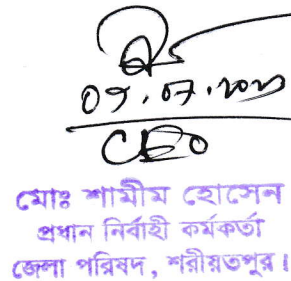 CEO
মোঃ শামীম হোসেন
প্রধান নির্বাহী কর্মকর্তা
জেলা পরিষদ, শরীয়তপুর।